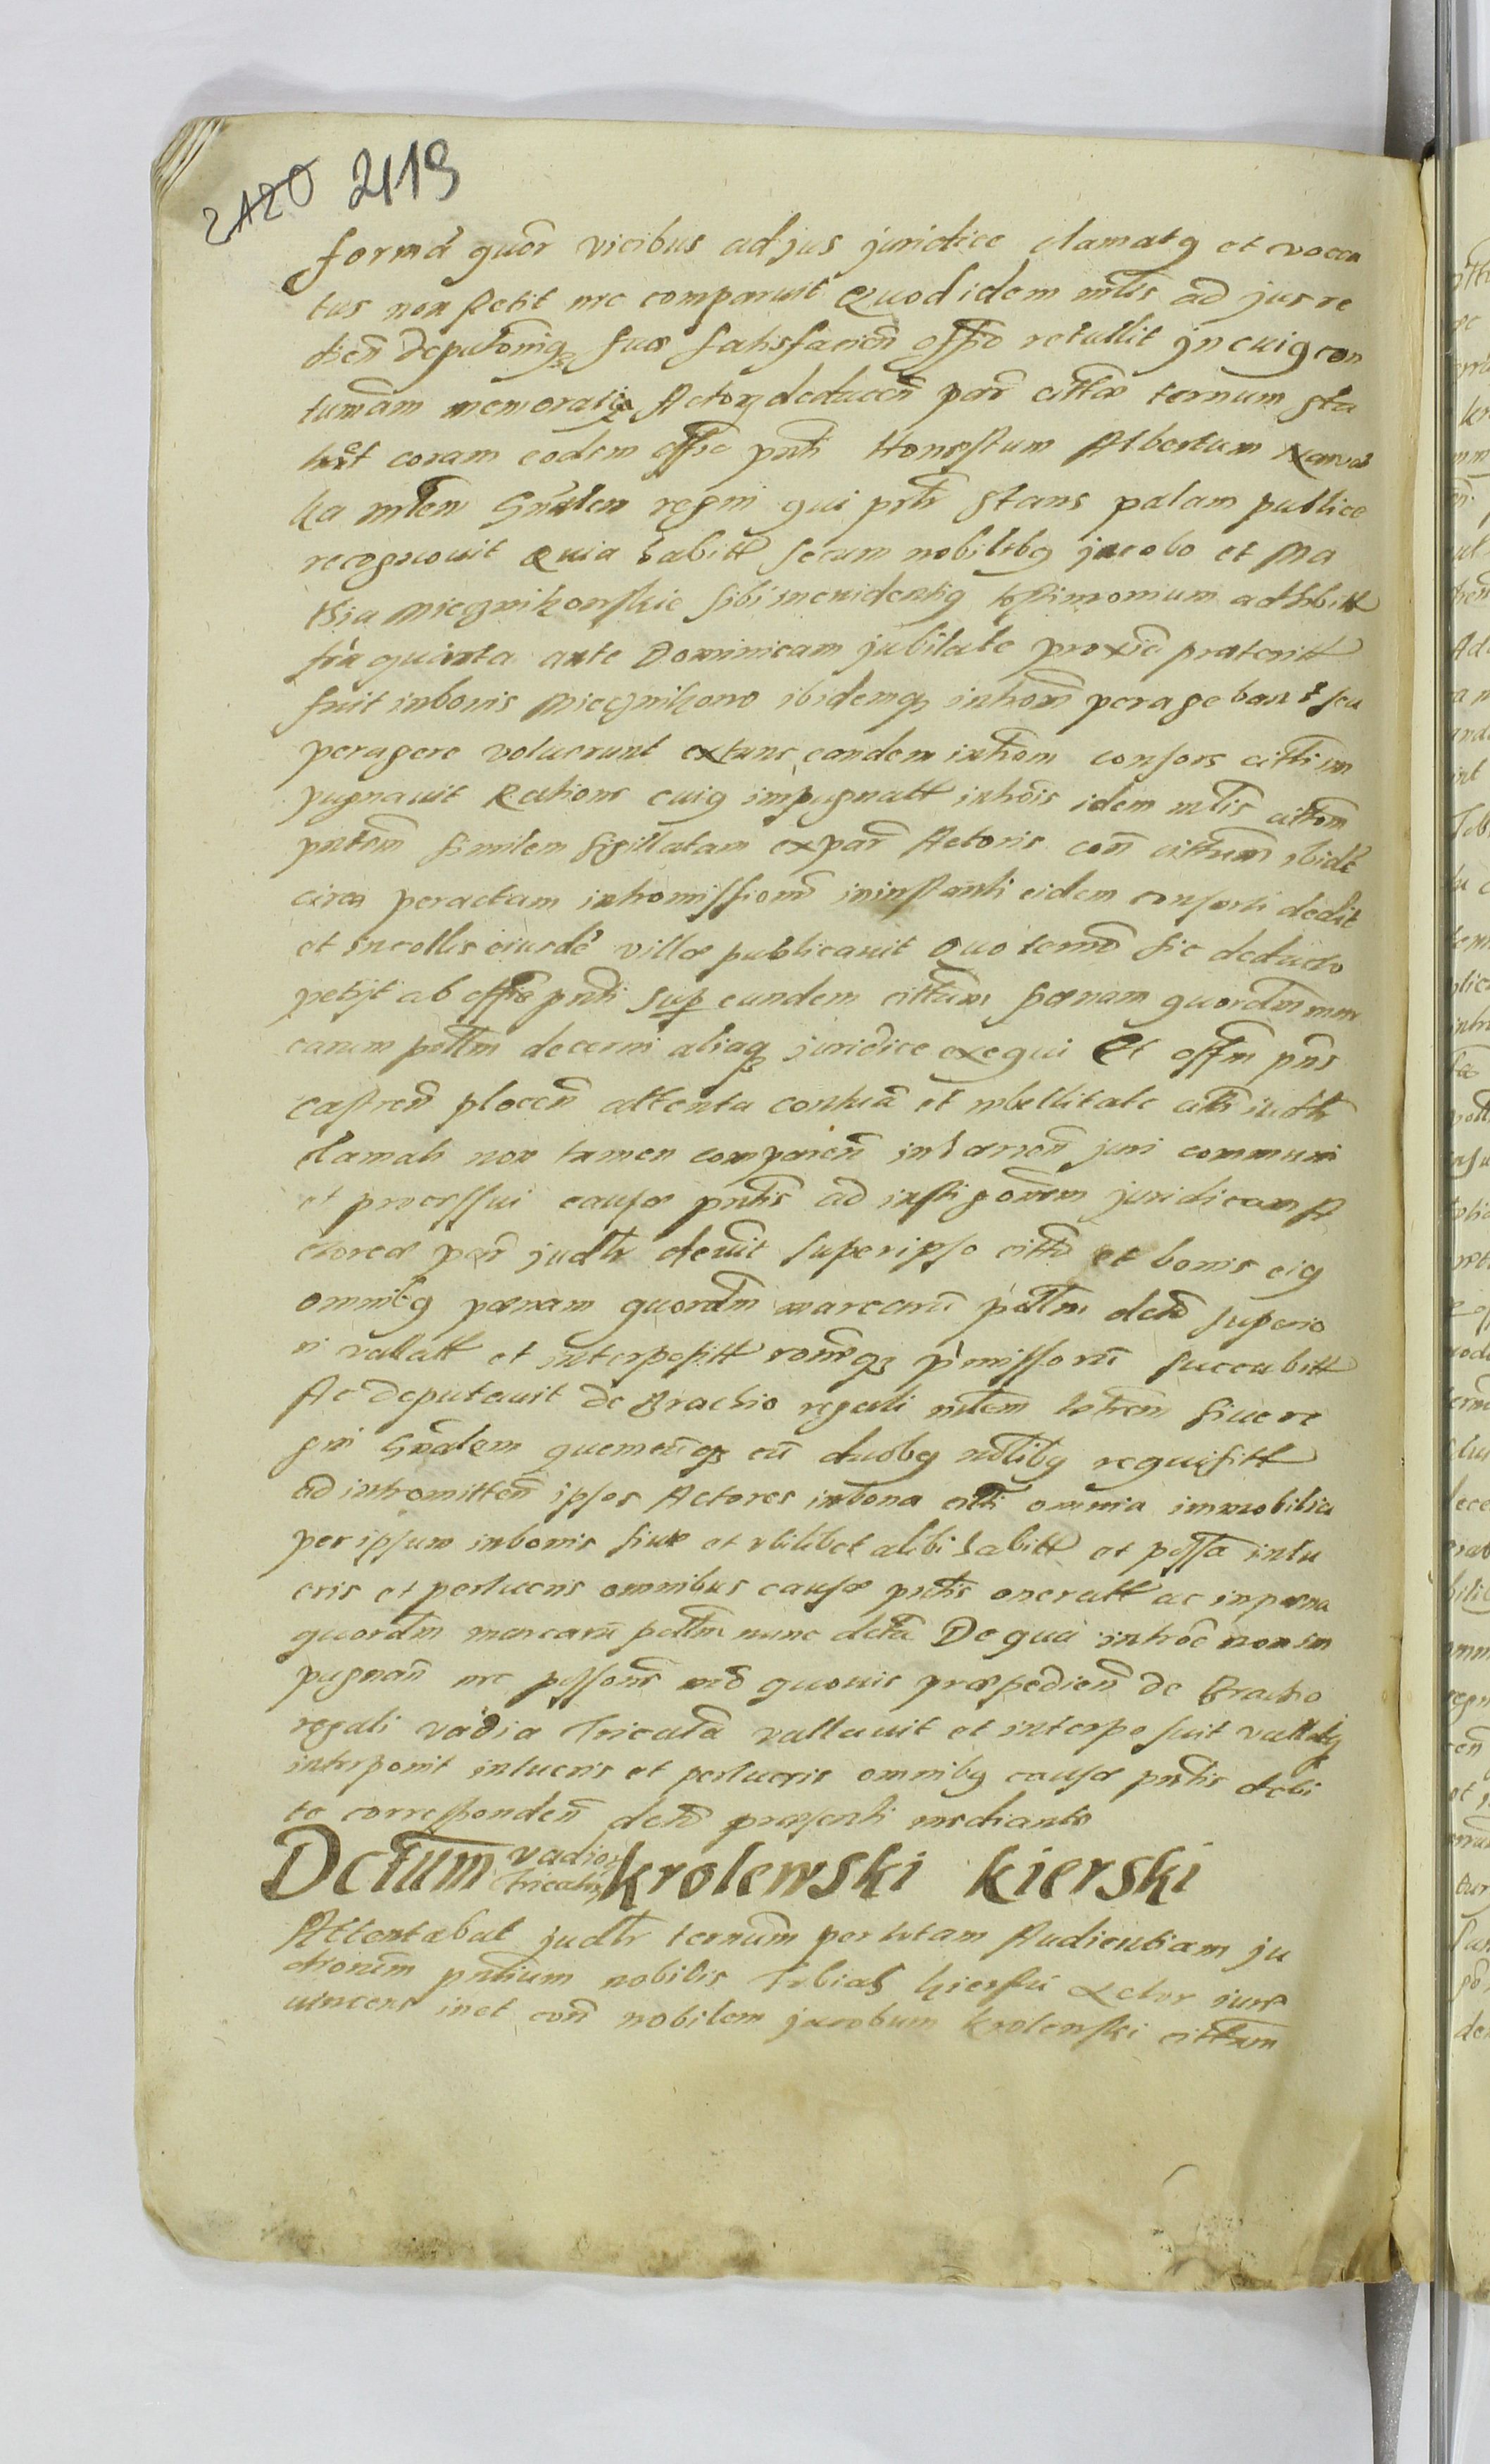 2420 2419
formá quor vicibus ad jus juridice clamatq et vocca
tus non stetit nec comparuit Quod idem mtis ad jus re
dien deputonig suæ satisfacien offo retullit jn cuig con
tumám memoratq Actorz deducen par citta ternum sta
huit coram eodem offic pnti Honestum Albertum
ka mlem Gnralem regni qui pntr stans palam publice
recognouit Quia habitt secum nobilibg jacobo et Ma
thia Miecznikowskie sibi in euidentig testimonium adhibitt
fria quarta ante Dominicam jubilate proxie præteritt
fuit in bonis Miecznikowo ibidemqz inhom peragebant seu
peragere voluerunt ex tunc eandem inthom consors citti im
pugnauit Rations cuig impugnatt inthois idem mlis cittom
pntem similem sigillatam ex par Actoris con cittum ibidé
circa peractam intromissionē in instanti eidem consorti dedit
et incollis eiusdé villæ publicauit Quo termo sic deducto
petijt ab offio pnti sup eundem cittum pænam quordm mar
carum pollm decerni aliaqz juridice exequi Et offm pns
castren plocen attenta contuá et rebellitate citti judtr
clamati non tamen comparen inhæren juri communi
et processui causæ pntis ad instigonem juridicam A
ctoreæ par judtr deuit super ipso citto et bonis eig
omnibg pænam quordm marcarū pollm deto superio
ri vallatt et interpositt ronéqz pmissorū succubitt
Ac deputauit de Brachio regali mlem totren siue re
gni Gnalem quemcūqz cū duobg nolibg requisitt
ad intromitten ipsos Actores in bona citti omnia immobilia
per ipsum in bonis siue et vbilibet alibi habitt et possa in lu
cris et perlucris omnibus causæ pntis oneratt ac in pæna
quordm marcarū pollm nunc deta De qua introe non im
pugnan nec posson neo quouis præpedien de Brachio
regali vadia Tricata vallauit et interposuit vallatq
interponit in lucris et perlucris omnibg causæ pntis debi
te corresponden deto præsenti mediante
Dctum vadiorz Tricatirz krolewski kierski
Attentabat judtr ternum per totam Audientiam ju
dicionem pntium nobilis Tobias kierski Actor jure
uincens in et con nobilem jacobum krolewski cittum